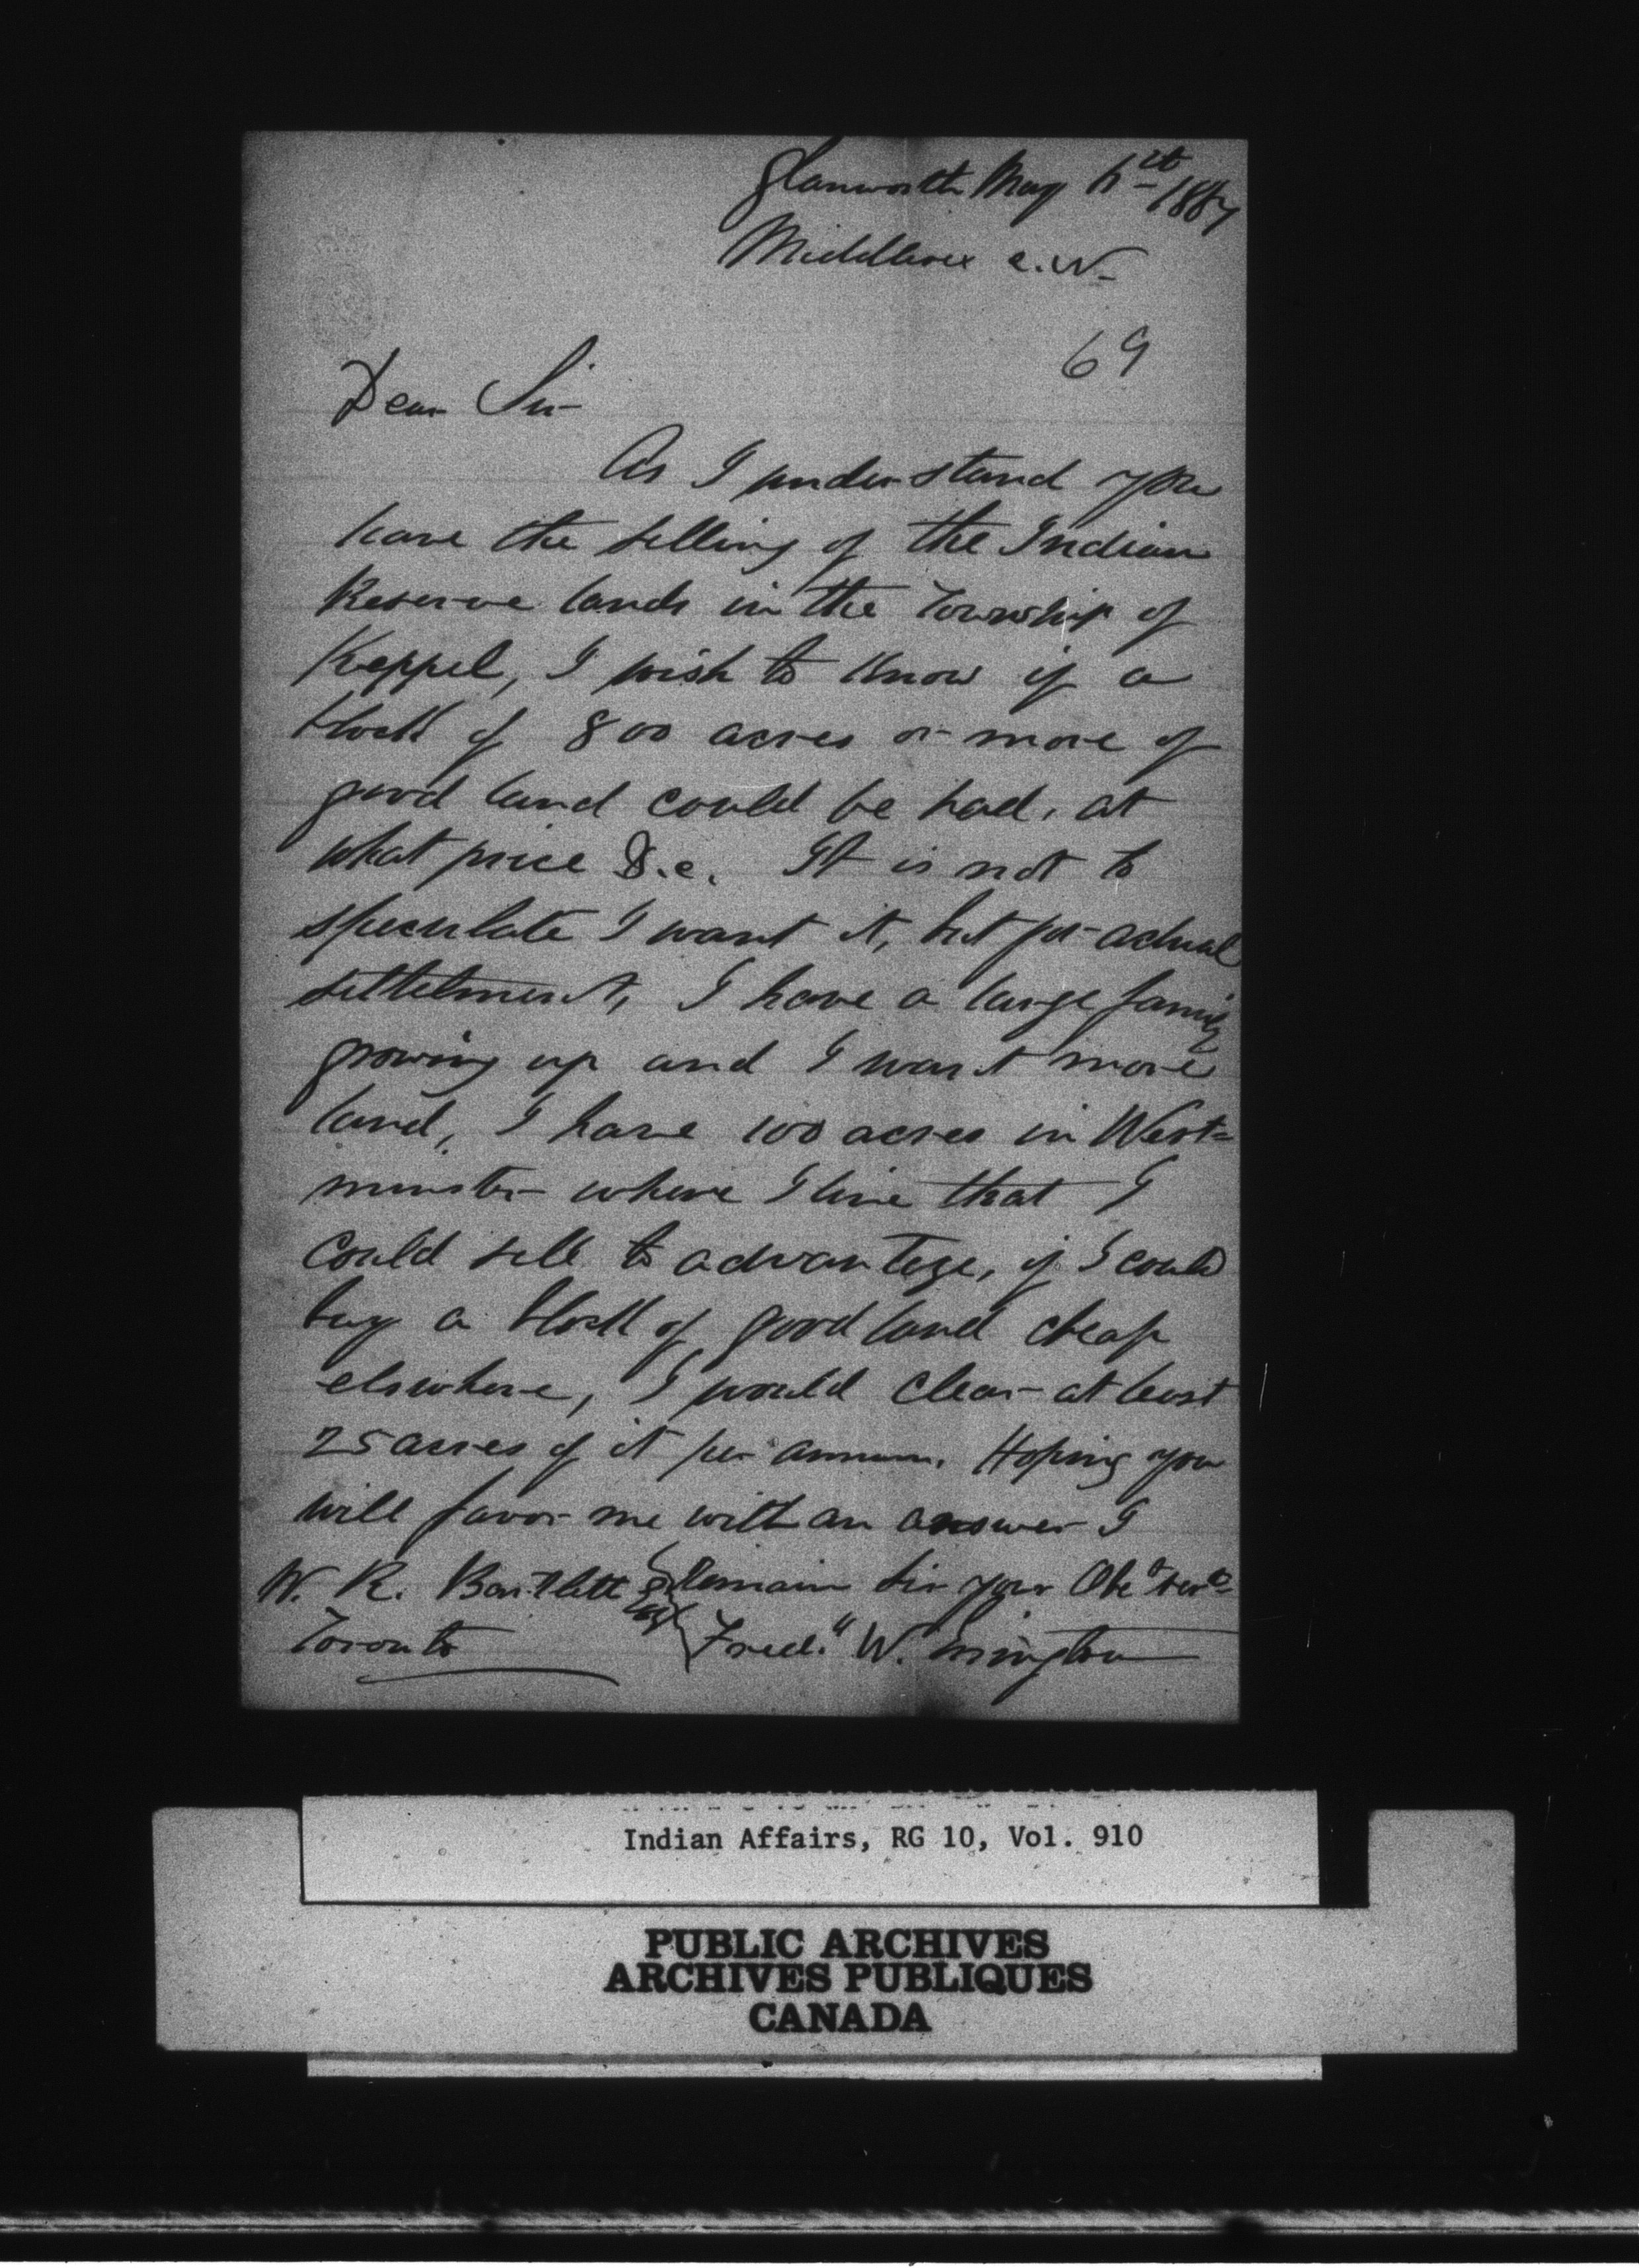 Glanworth May 6th 1867
Middlesex C.W.
69
Dear Sir
As I understand you
have the selling of the Indian
Reserve lands in the Township of
Keppel, I wish to know if a
block of 800 acres or more of
good land could be had, at
what price &.c. It is not to
speculate I want it, but for actual
settlement, I have a large family
growing up and I want more
land, I have 100 acres in West=
minster where I live that I
could sell to advantage, if I could
buy a block of good land cheap
elsewhere, I would clear at least
25 acres of it per annum. Hoping you
will favor me with an answer I
W. R. Bartlett Esq Remain Sir your Obt Servt
Toronto Fred. W.
Indian Affairs, RG 10, Vol. 910
PUBLIC ARCHIVES
ARCHIVES PUBLIQUES
CANADA